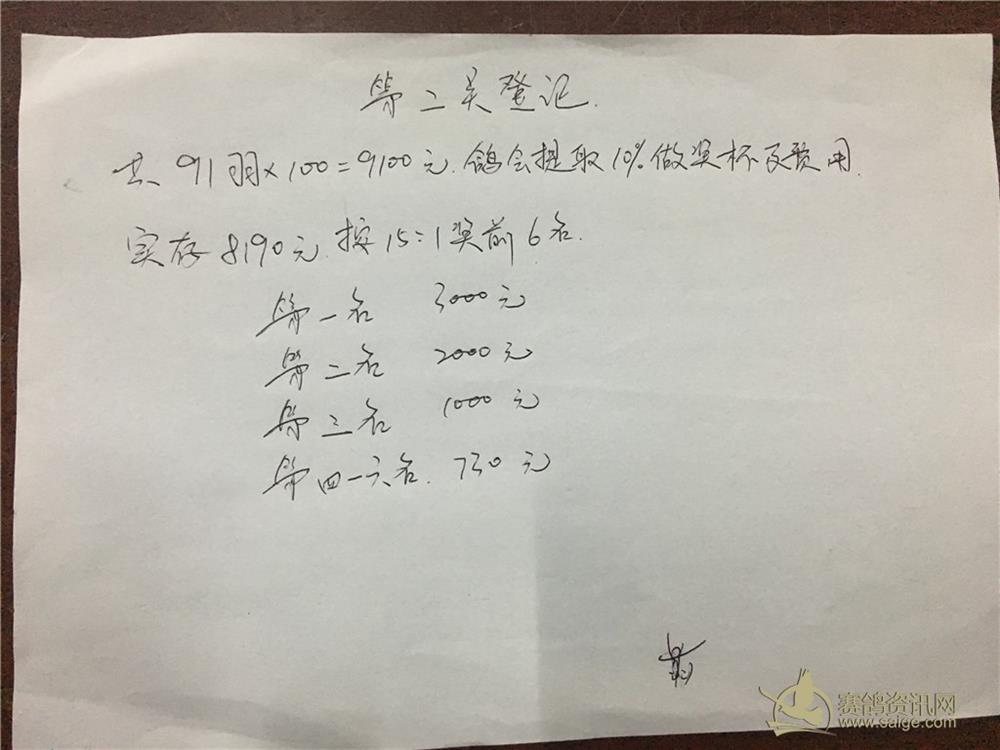 第二关登记.
共91羽×100=9100元.鸽会提取10%做奖杯及费用.
实存8190元.按15:1奖前6名.
第一名 3000元
第二名 2000元
第三名 1000元
第四一六名. 730元
赛鸽资讯网
www.saige.com